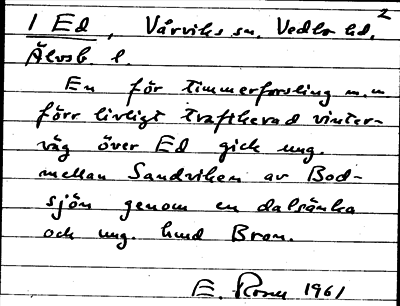 2
1 Ed, Vårviks sn. Vedbo hd.
Älvsb l.
En för timmerforsling m.m
förr livligt trafikerad vinter-
väg över Ed gick ung.
mellan Sandviken av Bod-
sjön genom en dalsänka
och ung. hmd Bron.
E. 1961